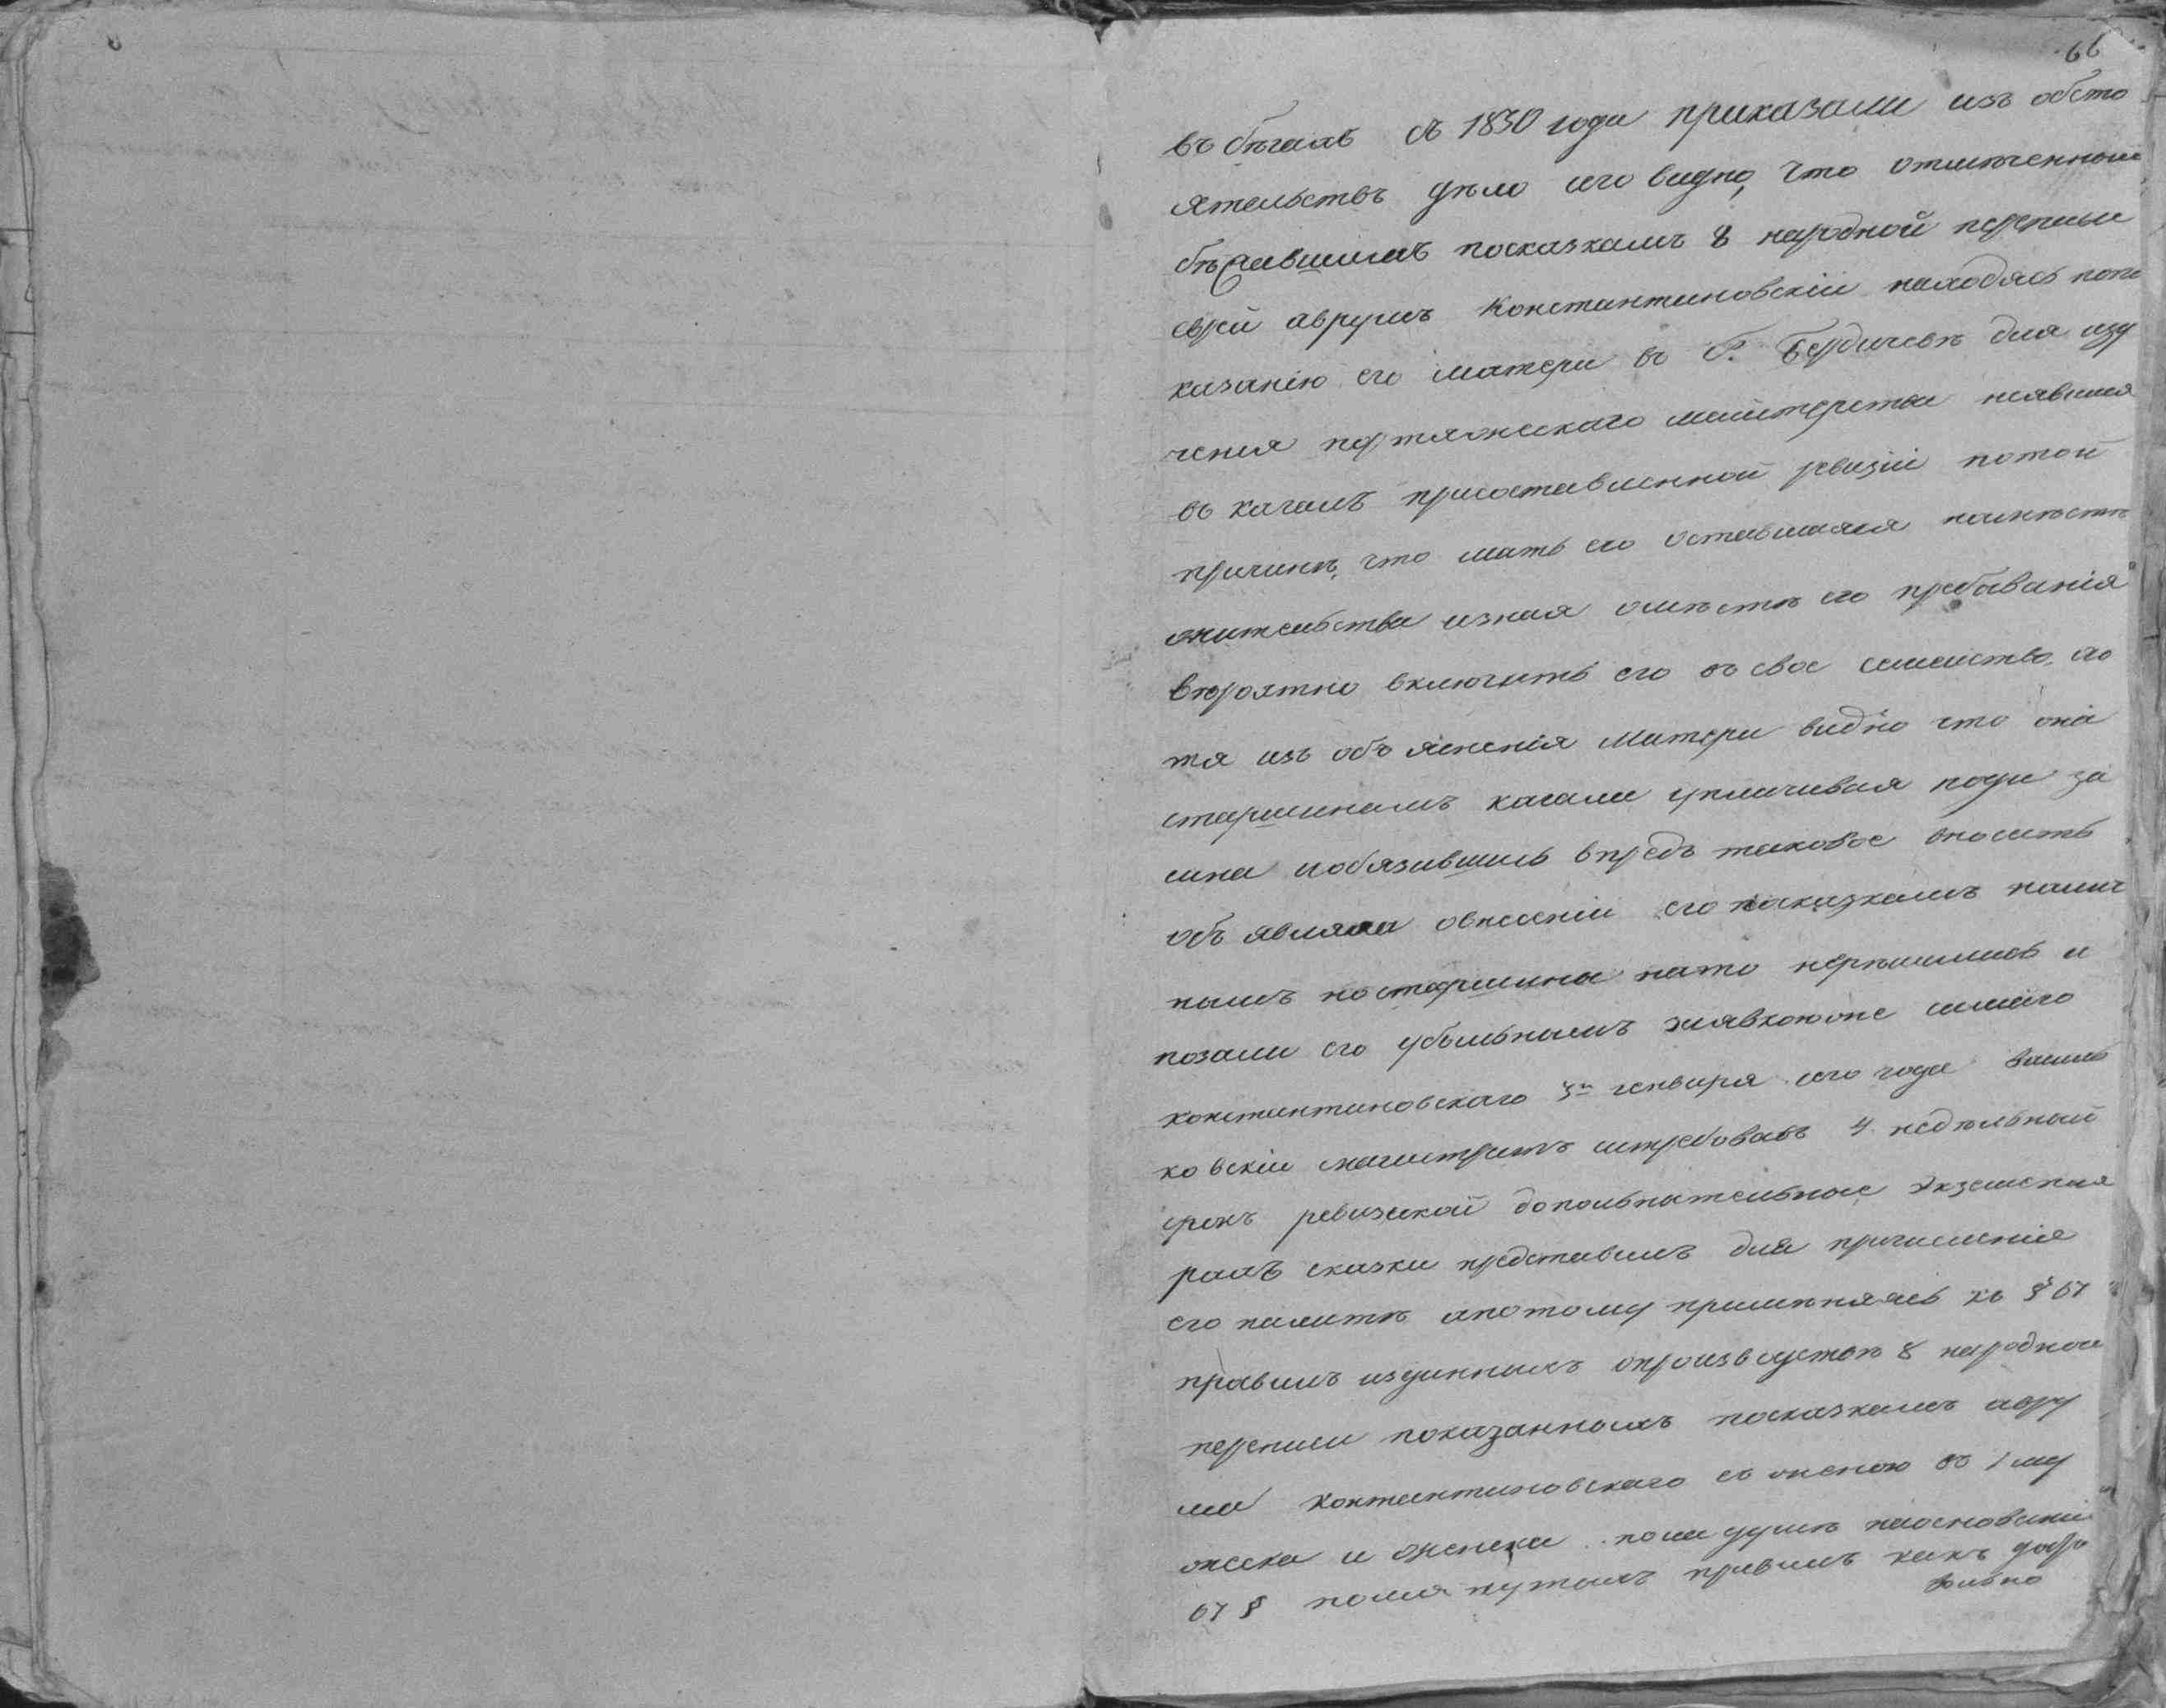 66
въ бѣгахъ съ 1830 года приказали изъ обсто
ятельствъ дѣло сего видно, что отмѣченный
бѣжавшимъ посказкамъ 8 народной переписи
еврей аврумъ Константиновскій находясь попо
казанію его матери въ Г. Бердичевѣ для изу
ченія портняжескаго майстерства неявился
въ кагалъ присоставленной ревизіи потой
причинѣ, что мать его оставшаяся намѣстѣ
жительства незная омѣстѣ его пребыванія
вѣроятно включить его въ свое семейство. хо
тя изъ объясненія матери видно что она
старшинамъ кагала уплачивая поди за
сина иобязавшись впредь таковое вносить
объявляла овнесеніи его посказкамъ налич
нымъ но старшины нато нерѣшились и
показали его убыльнымъ заявкоюже самаго
константиновскаго 3го генваря сего года Василь
ковскій магистратъ истребовавъ 4 недѣльный
срокъ ревизской дополнительные экземпля
рахъ сказки представилъ для причисленія
его палатѣ апотому примѣняясь къ § 67
правилъ изданныхъ опроизводствѣ 8 народной
переписи показаннымъ посказкамъ авру
ма константиновскаго съ женою въ 1 му
жеска и женска пола душѣ наоснованіи
67 § помянутыхъ правилъ какъ добро
вольно